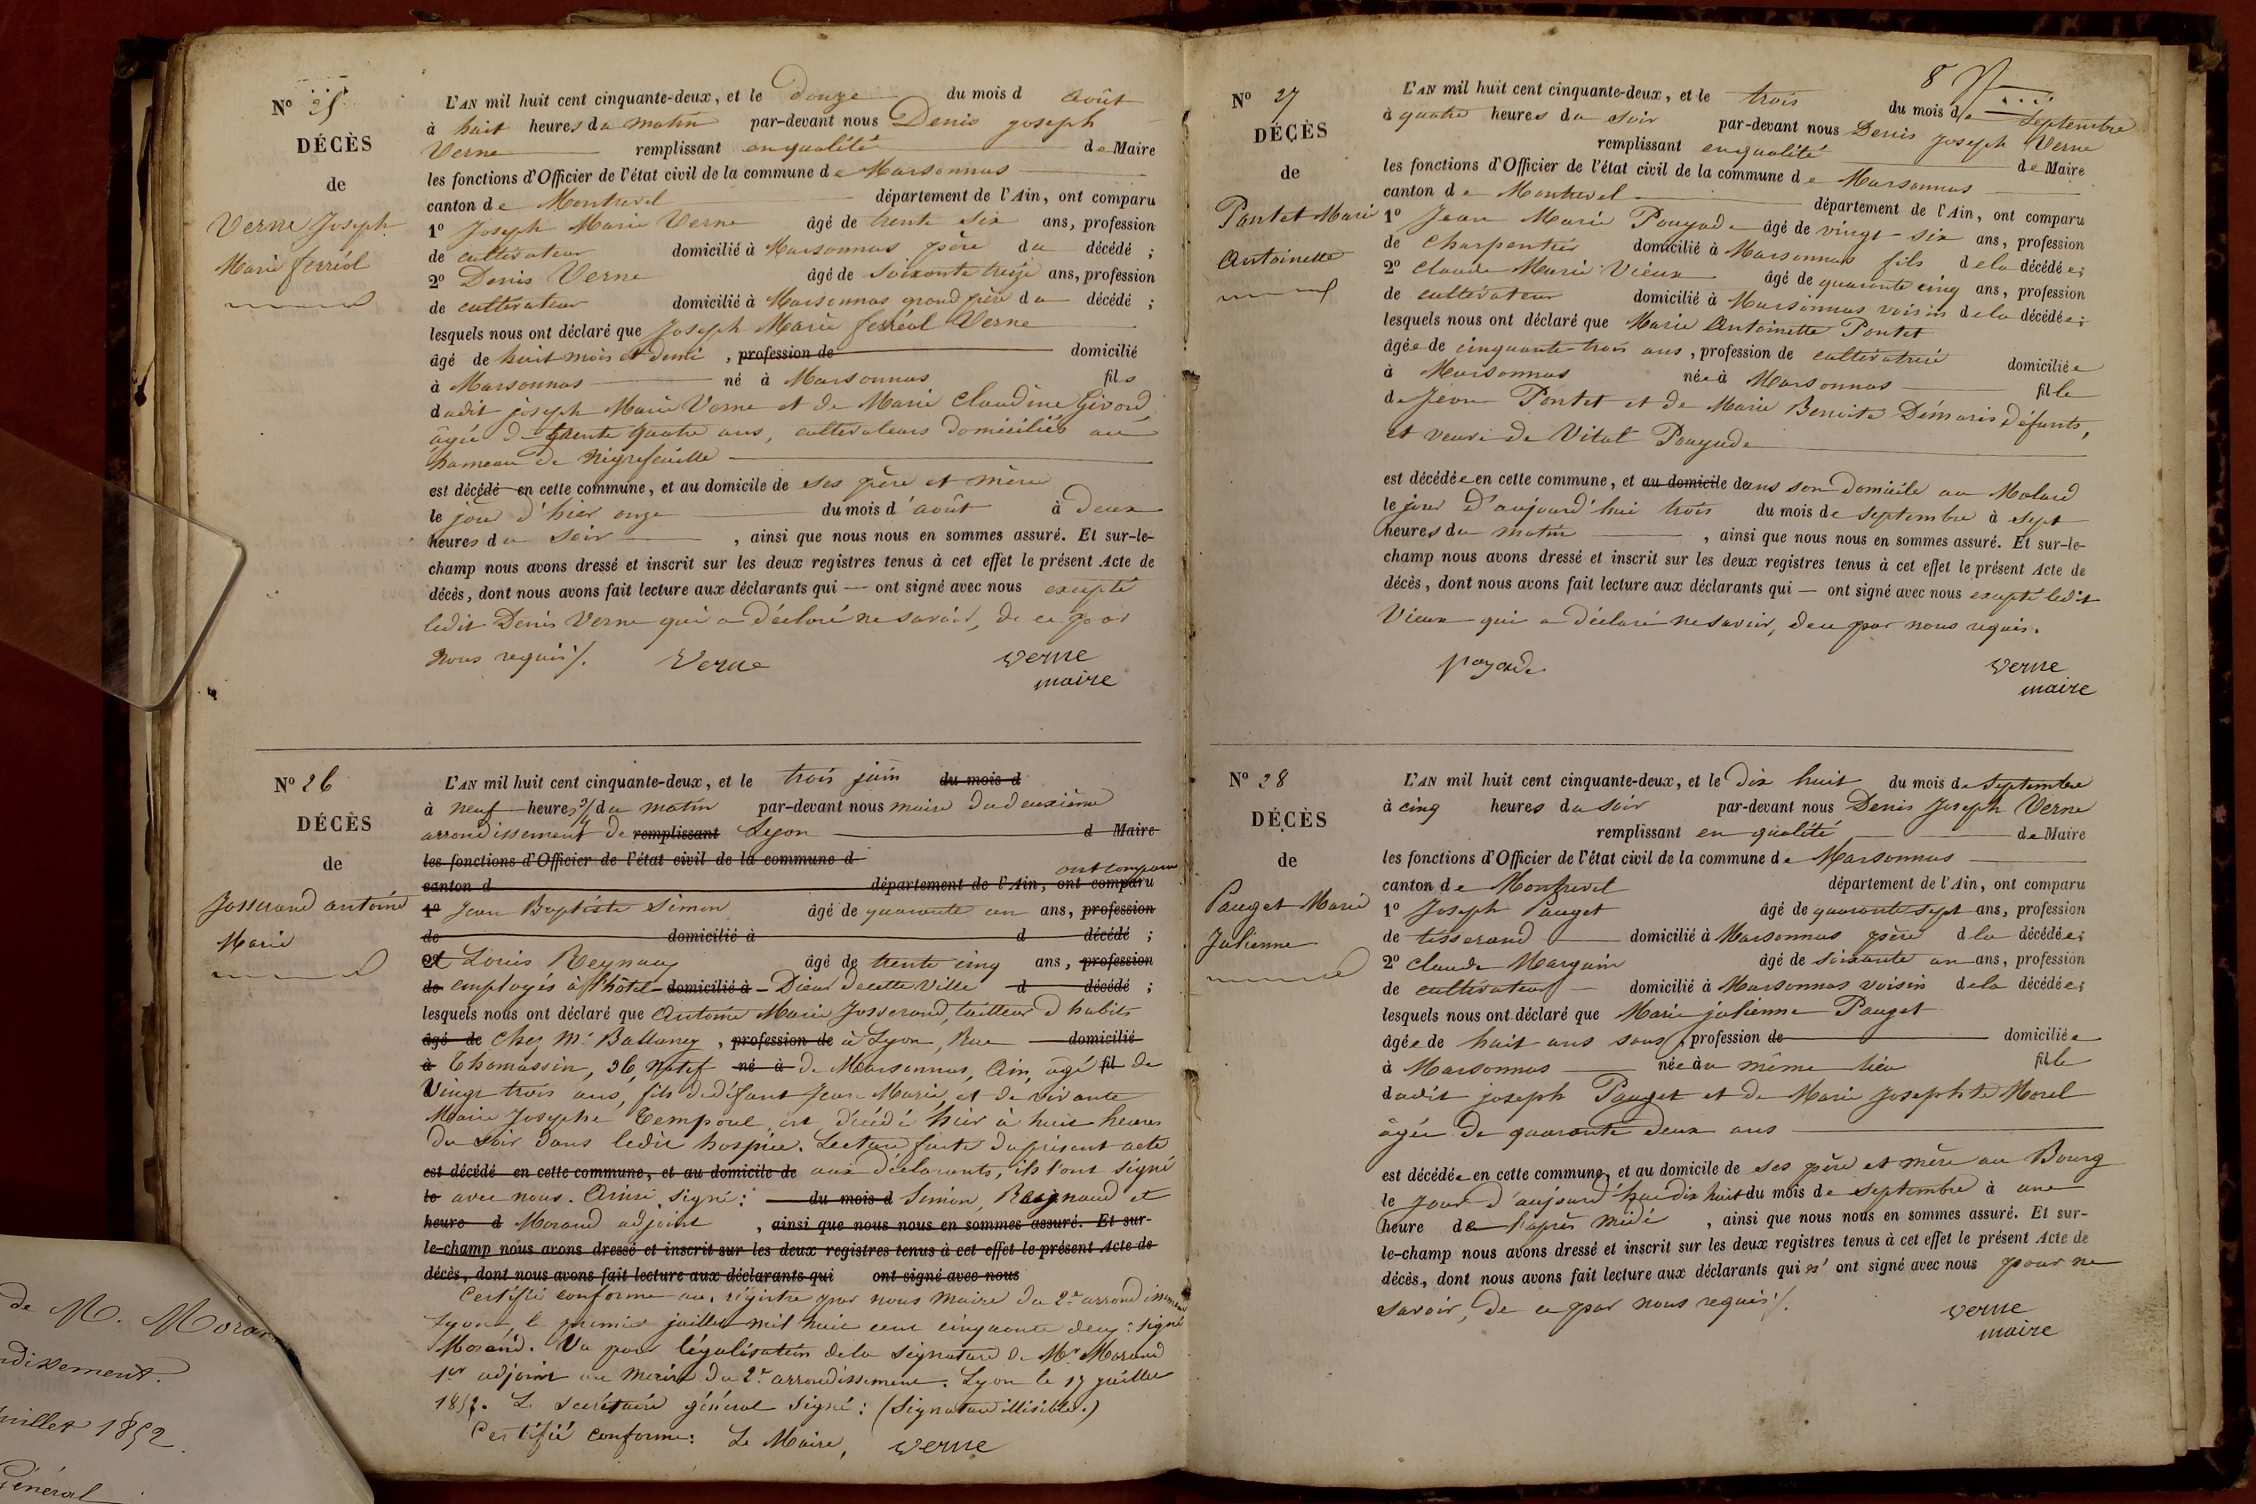 N° 25
DÉCÈS
de
Verne Joseph
Marie ferréol
L'AN mil huit cent cinquante-deux, et le douze du mois d août
à huit heures du matin par-devant nous Denis joseph
Verne remplissant en qualité de Maire
les fonctions d'Officier de l'état civil de la commune de Marsonnas
canton de Montrevel département de l'Ain, ont comparu
1° Joseph Marie Verne âgé de trente six ans, profession
de cultivateur domicilié à Marsonnas père du décédé ;
2° Denis Verne âgé de soixante treize ans, profession
de cultivateur domicilié à Marsonnas grand père du décédé ;
lesquels nous ont déclaré que Joseph Marie ferréol Verne
âgé de huit mois et demi , profession de domicilié
à Marsonnas né à Marsonnas fils
dudit joseph Marie Verne et de Marie Claudine Givord
âgée de trente quatre ans, cultivateurs domiciliés au
hameau de
est décédé en cette commune, et au domicile de ses père et mère
le jour d'hier onze du mois d'août à deux
heures du soir , ainsi que nous nous en sommes assuré. Et sur-le-
champ nous avons dressé et inscrit sur les deux registres tenus à cet effet le présent Acte de
décès, dont nous avons fait lecture aux déclarants qui — ont signé avec nous excepté
ledit Denis Verne qui a déclaré ne savoir, de ce par
nous requis ./. Verne verne
maire
N° 26
DÉCÈS
de
Josserand antoine
Marie
L'AN mil huit cent cinquante-deux, et le trois juin du mois d
à neuf heures du matin par-devant nous maire du deuxième
arrondissement de remplissant Lyon d Maire
les fonctions d'Officier de l'état civil de la commune d
ont comparu
canton d département de l'Ain, ont comparu
1° Jean Baptiste Simon âgé de quarante un ans, profession
de domicilié à d décédé ;
et Louis Reynaud âgé de trente cinq ans, profession
de employés à l'hôtel domicilié à Dieu de cette ville d décédé ;
lesquels nous ont déclaré que Antoine Marie Josserand, tailleur d'habits
âgé de chez Mr , profession de à Lyon, Rue domicilié
à Thomassin, 36, natif né à de Marsonnas, Ain, âgé fil de
Vingt trois ans, fils de défunt Jean Marie, et de vivante
Marie Josephe Temporal, est décédé hier à huit heures
du soir dans ledit hospice. Lecture faite du présent acte
est décédé en cette commune, et au domicile de aux déclarants, ils l'ont signé
le avec nous. Ainsi signé : du mois d Simon, Reygnaud et
heure d Morand adjoint , ainsi que nous nous en sommes assuré. Et sur-
le-champ nous avons dressé et inscrit sur les deux registres tenus à cet effet le présent Acte de
décès, dont nous avons fait lecture aux déclarants qui ont signé avec nous
Certifié conforme au régistre par nous maire du 2e arrondissement
Lyon, le premier juillet mil huit cent cinquante deux : signé
Morand. Vu pour légalisation de la signature de Mr Morand
1er adjoint au maire du 2e arrondissement. Lyon le 17 juillet
1852. Le secrétaire général signé : (Signature illisible.)
Certifié conforme : Le Maire, verne
de M. Moran
ndissement.
juillet 1852.
Général
8
N° 27
DÉCÈS
de
Pontet Marie
Antoinette
L'AN mil huit cent cinquante-deux, et le trois du mois de septembre
à quatre heures du soir par-devant nous Denis Joseph Verne
remplissant en qualité de Maire
les fonctions d'Officier de l'état civil de la commune de Marsonnas
canton de Montrevel département de l'Ain, ont comparu
1° Jean Marie Pouyade âgé de vingt six ans, profession
de charpentier domicilié à Marsonnas fils de la décédée ;
2° claude Marie Vieux âgé de quarante cinq ans, profession
de cultivateur domicilié à Marsonnas voisin de la décédée ;
lesquels nous ont déclaré que Marie Antoinette Pontet
âgée de cinquante trois ans, profession de cultivatrice domiciliée
à Marsonnas née à Marsonnas fille
de Jean Pontet et de Marie Benoite Démaris défunts,
et veuve de Vital Pouyade
est décédée en cette commune, et au domicile dans son domicile au Molard
le jour d'aujourd'hui trois du mois de septembre à sept
heures du matin , ainsi que nous nous en sommes assuré. Et sur-le-
champ nous avons dressé et inscrit sur les deux registres tenus à cet effet le présent Acte de
décès, dont nous avons fait lecture aux déclarants qui — ont signé avec nous excepté ledit
Vieux qui a déclaré ne savoir, de ce par nous requis.
poyade verne
maire
N° 28
DÉCÈS
de
Pauget Marie
Julienne
L'AN mil huit cent cinquante-deux, et le dix huit du mois de septembre
à cinq heures du soir par-devant nous Denis Joseph Verne
remplissant en qualité de Maire
les fonctions d'Officier de l'état civil de la commune de Marsonnas
canton de Montrevel département de l'Ain, ont comparu
1° Joseph Pauget âgé de quarante sept ans, profession
de tisserand domicilié à Marsonnas père d la décédée ;
2° claude Marguin âgé de soixante un ans, profession
de cultivateur domicilié à Marsonnas voisin de la décédée ;
lesquels nous ont déclaré que Marie julienne Pauget
âgée de huit ans sans , profession de domiciliée
à Marsonnas née au même lieu fille
dudit joseph Pauget et de Marie Josephte Morel
âgée de quarante deux ans
est décédée en cette commune, et au domicile de ses père et mère au Bourg
le jour d'aujourd'hui dix huit du mois de septembre à une
heure de l'après midi , ainsi que nous nous en sommes assuré. Et sur-
le-champ nous avons dressé et inscrit sur les deux registres tenus à cet effet le présent Acte de
décès, dont nous avons fait lecture aux déclarants qui n'ont signé avec nous pour ne
savoir, de ce par nous requis ./. verne
maire